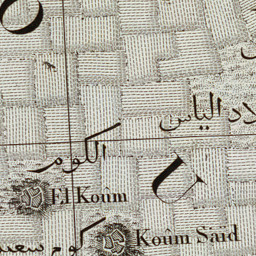 لاد الياس
الكوم
El Koûm
كوم سعيد
Koûm Säïd